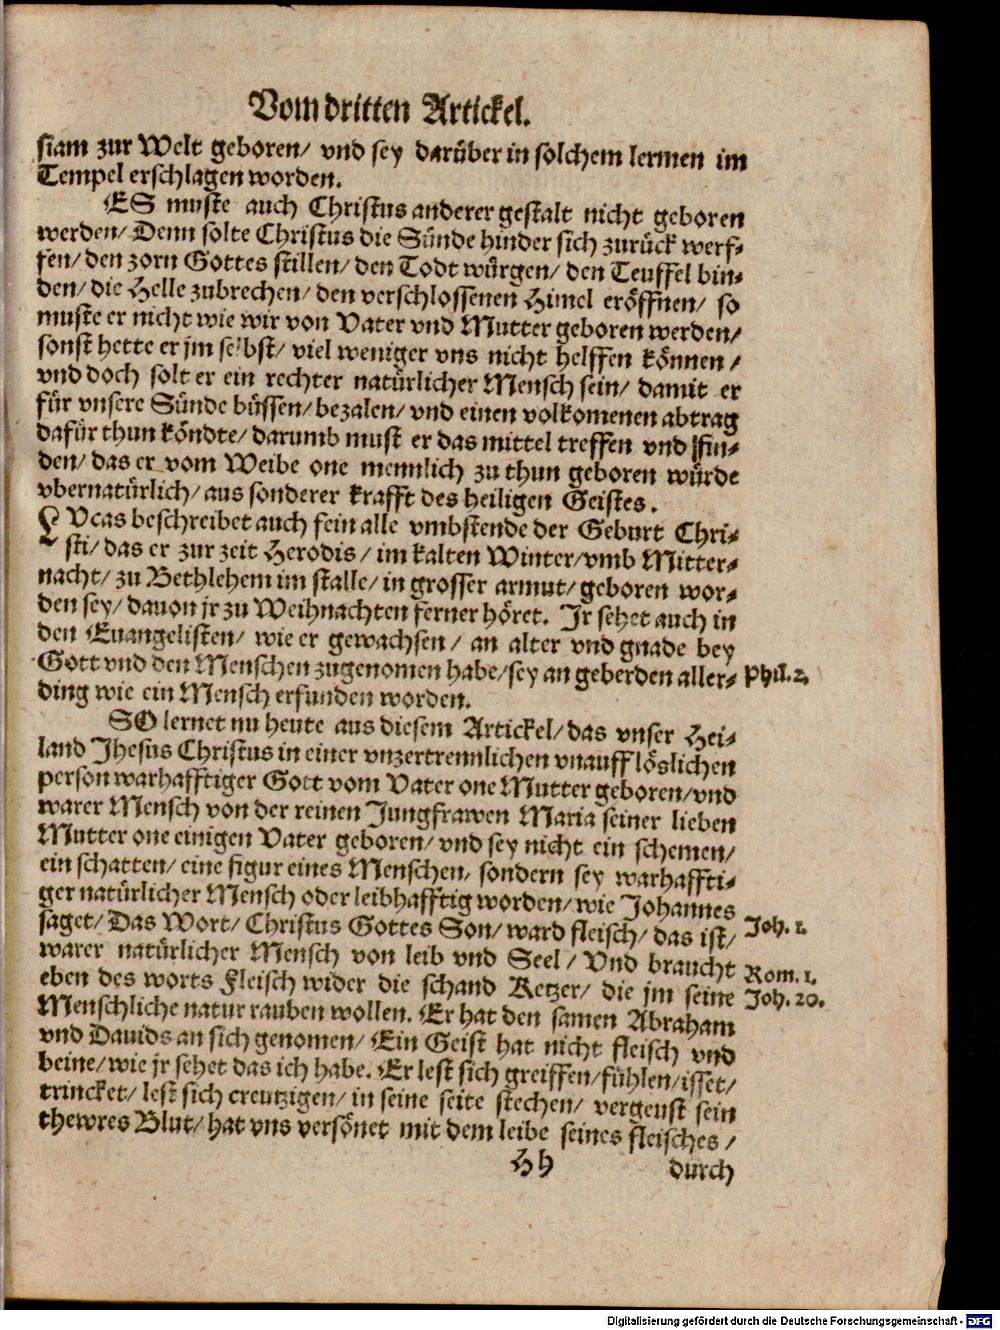 Vom dritten Artickel.
siam zur Welt geboren/ vnd sey darüber in solchem lermen im
Tempel erschlagen worden.
ES muste auch Christus anderer gestalt nicht geboren
werden/ Denn solte Christus die Sünde hinder sich zurück werf-
fen/ den zorn Gottes stillen/ den Todt würgen/ den Teuffel bin-
den/ die Helle zubrechen/ den verschlossenen Himel eröffnen/ so
muste er nicht wie wir von Vater vnd Mutter geboren werden/
sonst hette er jm selbst/ viel weniger vns nicht helffen können/
vnd doch solt er ein rechter natürlicher Mensch sein/ damit er
für vnsere Sünde büssen/ bezalen/ vnd einen volkomenen abtrag
dafür thun köndte/ darumb must er das mittel treffen vnd fin-
den/ das er vom Weibe one mennlich zu thun geboren würde
vbernatürlich/ aus sonderer krafft des heiligen Geistes.
LVcas beschreibet auch fein alle vmbstende der Geburt Chri-
sti/ das er zur zeit Herodis/ im kalten Winter/ vmb Mitter-
nacht/ zu Bethlehem im stalle/ in grosser armut/ geboren wor-
den sey/ dauon jr zu Weihnachten ferner höret. Ir sehet auch in
den Euangelisten/ wie er gewachsen/ an alter vnd gnade bey
Gott vnd den Menschen zugenomen habe/ sey an geberden aller- Phil. 2.
ding wie ein Mensch erfunden worden.
SO lernet nu heute aus diesem Artickel/ das vnser Hei-
land Jhesus Christus in einer vnzertrennlichen vnaufflöslichen
person warhafftiger Gott vom Vater one Mutter geboren/ vnd
warer Mensch von der reinen Jungfrawen Maria seiner lieben
Mutter one einigen Vater geboren/ vnd sey nicht ein schemen/
ein schatten/ eine figur eines Menschen, sondern sey warhaffti-
ger natürlicher Mensch oder leibhafftig worden/ wie Johannes
saget/ Das Wort/ Christus Gottes Son/ ward fleisch/ das ist/ Joh. 1.
warer natürlicher Mensch von leib vnd Seel/ Vnd braucht Rom. 1.
eben des worts Fleisch wider die schand Ketzer/ die jm seine Joh. 20.
Menschliche natur rauben wollen. Er hat den samen Abraham
vnd Dauids an sich genomen/ Ein Geist hat nicht fleisch vnd
beine/ wie jr sehet das ich habe. Er lest sich greiffen/ fühlen/ isset/
trincket/ lest sich creutzigen/ in seine seite stechen/ vergeust sein
thewres Blut/ hat vns versönet mit dem leibe seines fleisches/
Hh durch
Digitalisierung gefördert durch die Deutsche Forschungsgemeinschaft - DFG